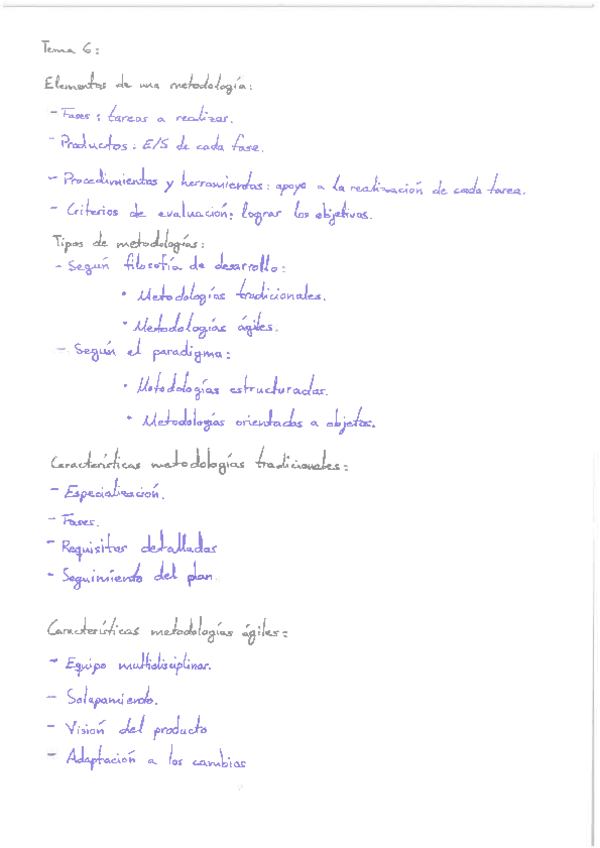 Tema 6:
Elementos de una metodología:
- Fases: tareas a realizar.
- Productos: E/S de cada fase.
- Procedimientos y herramientas: apoyo a la realización de cada tarea.
- Criterios de evaluación: lograr los objetivos.
Tipos de metodologías:
- Según filosofía de desarrollo:
• Metodologías tradicionales.
• Metodologías ágiles.
- Según el paradigma:
• Metodologías estructuradas.
• Metodologías orientadas a objetos.
Características metodologías tradicionales:
- Especialización.
- Fases.
- Requisitos detallados
- Seguimiento del plan.
Características metodologías ágiles:
- Equipo multidisciplinar.
- Solapamiento.
- Visión del producto
- Adaptación a los cambios